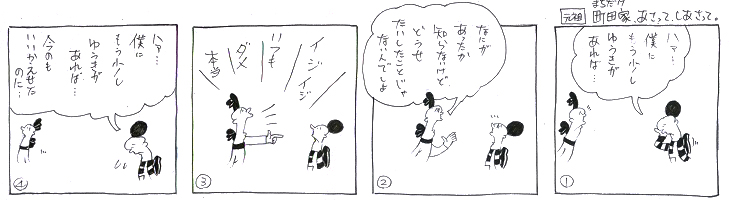 まちだけ
元祖 町田家、あさって、しあさって。
ハァ…
僕に
もう少し
ゆうきが
あれば…
①
なにが
あったか
知らないけど
どうせ
たいしたことじゃ
ないんでしょ
②
イジイジ
いつも
ダメ
本当
③
ハァ…
僕に
もう少し
ゆうきが
あれば…
今のも
いいかえせた
のに…
④